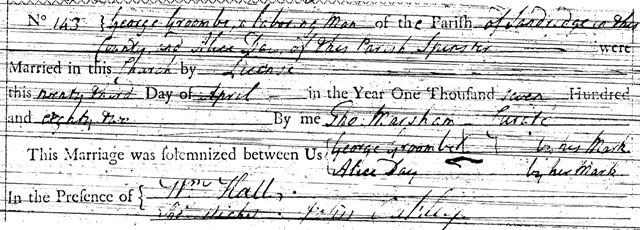 No 143 { George Groombe a laboring Man of the Parish of Sandridge in this
County and Alice Day, of this Parish Spinster were
Married in this Church by License
this twenty third Day of April in the Year One Thousand seven Hundred
and eighty two By me Tho Marsham Curate
This Marriage was solemnized between Us { George Groombe X by his Mark
Alice Day by her Mark
In the Presence of { Wm Hall